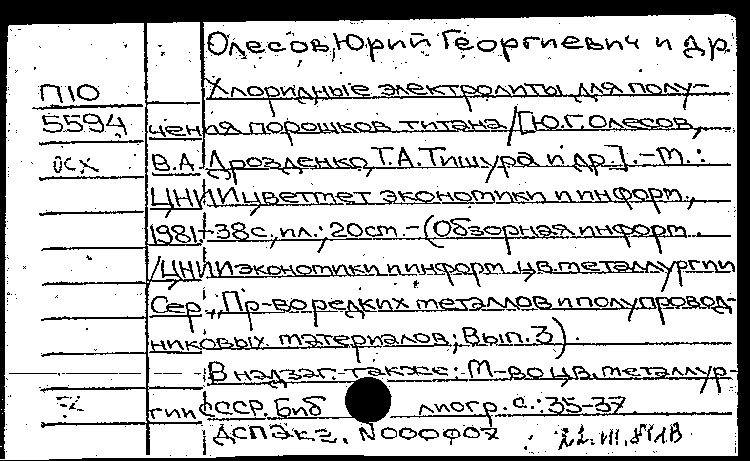 Олесов, Юрий Георгиевич и др.
П10 Хлоридные электролиты для полу-
5594 чения порошков титана/[Ю.Г.Олесов,
осх В.А.Дрозденко, Т.А.Тишура и др.].-М.:
ЦНИИцветмет экономики и информ.,
1981.-38с., ил.; 20см.-(Обзорная информ.
/ЦНИИ экономики и информ. цв. металлургии
Сер. „Пр-во редких металлов и полупровод-
никовых материалов; Вып. 3).
В надзаг. также: М-во цв. металлур-
гии СССР. Библиогр. с.: 35-37.
ДСП Экз. N000407